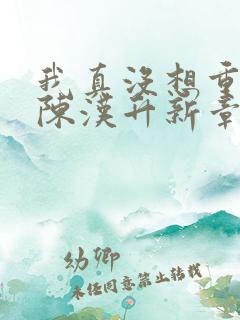 我真没想重
陈漢升新章
幼卿
未经同意禁止转载